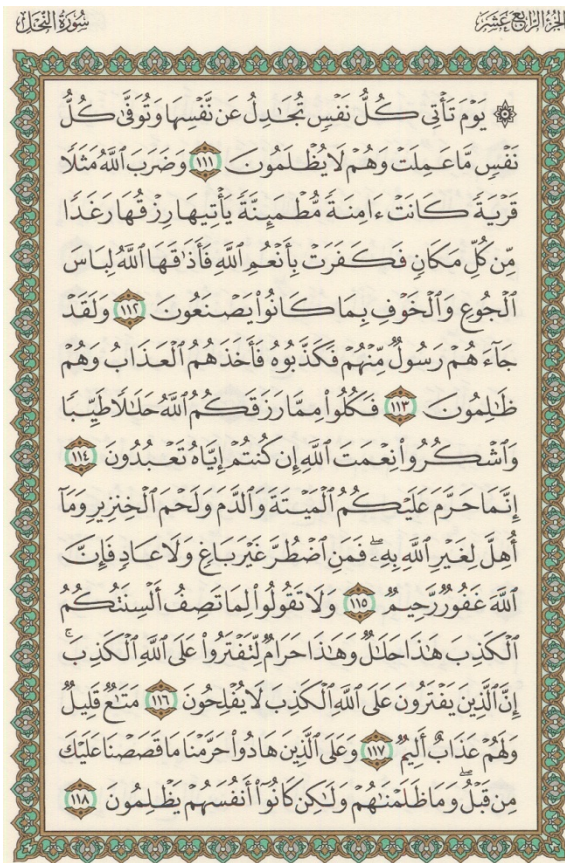 سُورَةُ النَّحْلِ
الجُزْءُ الرَّابِعَ عَشَرَ
۞ يَوْمَ تَأْتِى كُلُّ نَفْسٍ تُجَٰدِلُ عَن نَّفْسِهَا وَتُوَفَّىٰ كُلُّ
نَفْسٍ مَّا عَمِلَتْ وَهُمْ لَا يُظْلَمُونَ ١١١ وَضَرَبَ ٱللَّهُ مَثَلًا
قَرْيَةً كَانَتْ ءَامِنَةً مُّطْمَئِنَّةً يَأْتِيهَا رِزْقُهَا رَغَدًا
مِّن كُلِّ مَكَانٍ فَكَفَرَتْ بِأَنْعُمِ ٱللَّهِ فَأَذَٰقَهَا ٱللَّهُ لِبَاسَ
ٱلْجُوعِ وَٱلْخَوْفِ بِمَا كَانُوا۟ يَصْنَعُونَ ١١٢ وَلَقَدْ
جَآءَهُمْ رَسُولٌ مِّنْهُمْ فَكَذَّبُوهُ فَأَخَذَهُمُ ٱلْعَذَابُ وَهُمْ
ظَٰلِمُونَ ١١٣ فَكُلُوا۟ مِمَّا رَزَقَكُمُ ٱللَّهُ حَلَٰلًا طَيِّبًا
وَٱشْكُرُوا۟ نِعْمَتَ ٱللَّهِ إِن كُنتُمْ إِيَّاهُ تَعْبُدُونَ ١١٤
إِنَّمَا حَرَّمَ عَلَيْكُمُ ٱلْمَيْتَةَ وَٱلدَّمَ وَلَحْمَ ٱلْخِنزِيرِ وَمَآ
أُهِلَّ لِغَيْرِ ٱللَّهِ بِهِۦ ۖ فَمَنِ ٱضْطُرَّ غَيْرَ بَاغٍ وَلَا عَادٍ فَإِنَّ
ٱللَّهَ غَفُورٌ رَّحِيمٌ ١١٥ وَلَا تَقُولُوا۟ لِمَا تَصِفُ أَلْسِنَتُكُمُ
ٱلْكَذِبَ هَٰذَا حَلَٰلٌ وَهَٰذَا حَرَامٌ لِّتَفْتَرُوا۟ عَلَى ٱللَّهِ ٱلْكَذِبَ ۚ
إِنَّ ٱلَّذِينَ يَفْتَرُونَ عَلَى ٱللَّهِ ٱلْكَذِبَ لَا يُفْلِحُونَ ١١٦ مَتَٰعٌ قَلِيلٌ
وَلَهُمْ عَذَابٌ أَلِيمٌ ١١٧ وَعَلَى ٱلَّذِينَ هَادُوا۟ حَرَّمْنَا مَا قَصَصْنَا عَلَيْكَ
مِن قَبْلُ ۖ وَمَا ظَلَمْنَٰهُمْ وَلَٰكِن كَانُوٓا۟ أَنفُسَهُمْ يَظْلِمُونَ ١١٨